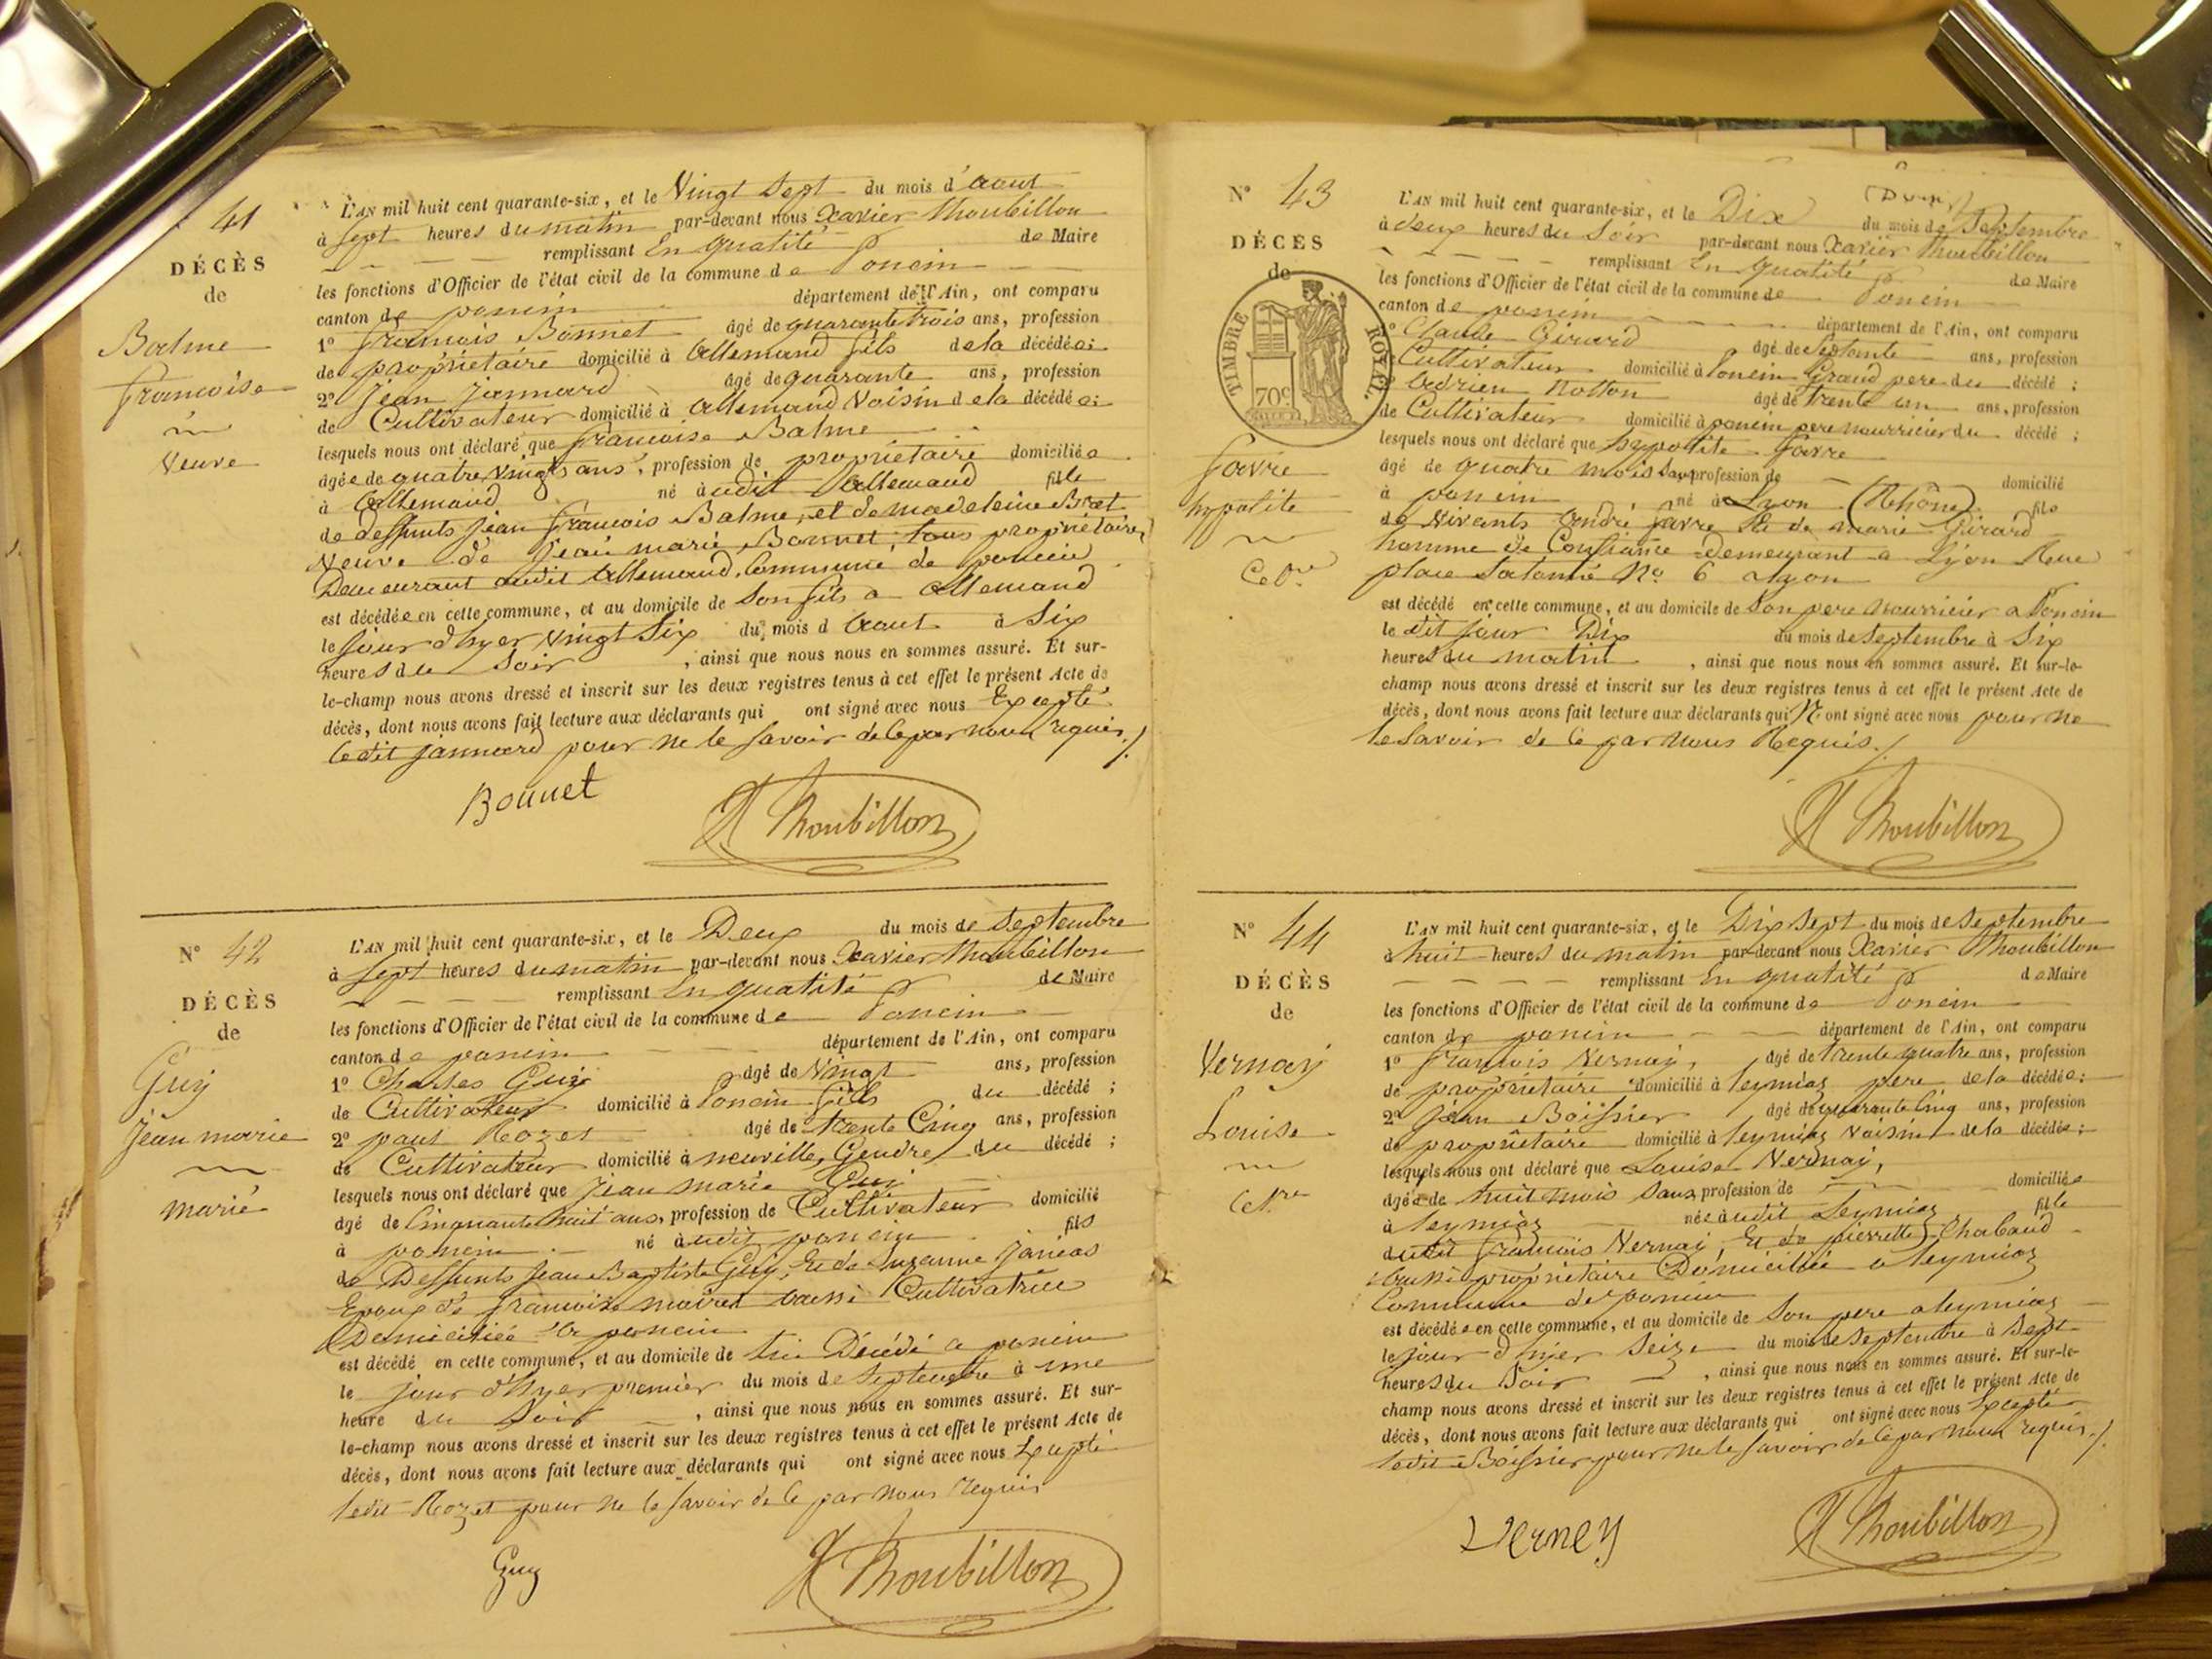 41
DÉCÈS
de
Balme
françoise
Veuve
L'AN mil huit cent quarante-six, et le Vingt Sept du mois d'aout
à Sept heures du matin par-devant nous Xavier Thoubillon
remplissant En qualité de Maire
les fonctions d'Officier de l'état civil de la commune de Poncin
canton de poncin département de l'Ain, ont comparu
1° françois Bonnet âgé de quarante trois ans, profession
de propriétaire domicilié à Allemand fils de la décédée;
2° Jean Jannard âgé de quarante ans, profession
de Cultivateur domicilié à Allemand Voisin de la décédée;
lesquels nous ont déclaré que françoise Balme
âgée de quatre vingts ans, profession de propriétaire domiciliée
à Allemand né audit Allemand fille
de deffunts Jean françois Balme, et de madeleine Bret
Veuve de Jean marie Bonnet, tous propriétaires
Demeurant audit Allemand, Commune de poncin
est décédée en cette commune, et au domicile de Son fils a Allemand
le jour d'hyer vingt Six du mois d Aout à Six
heures du Soir, ainsi que nous nous en sommes assuré. Et sur-
le-champ nous avons dressé et inscrit sur les deux registres tenus à cet effet le présent Acte de
décès, dont nous avons fait lecture aux déclarants qui ont signé avec nous Excepté
ledit Jannard pour ne le savoir de ce par nous requis ./.
Bonnet
X Thoubillon
N° 42
DÉCÈS
de
Guy
Jean marie
marié
L'AN mil huit cent quarante-six, et le Deux du mois de Septembre
à Sept heures du matin par-devant nous Xavier Thoubillon
remplissant En qualité de Maire
les fonctions d'Officier de l'état civil de la commune de Poncin
canton de poncin département de l'Ain, ont comparu
1° Charles Guy âgé de Vingt ans, profession
de Cultivateur domicilié à Poncin fils du décédé;
2° paul Rozet âgé de trente Cinq ans, profession
de Cultivateur domicilié à neuville, Gendre du décédé;
lesquels nous ont déclaré que Jean marie Guy
âgé de Cinquante huit ans, profession de Cultivateur domicilié
à poncin né audit poncin fils
de Deffunts Jean Baptiste Guy, Et de Suzanne
Epoux de françoise aussi Cultivatrice
Domiciliée a poncin
est décédé en cette commune, et au domicile de lui Décédé a poncin
le jour d'hyer premier du mois de Septembre à une
heure du Soir, ainsi que nous nous en sommes assuré. Et sur-
le-champ nous avons dressé et inscrit sur les deux registres tenus à cet effet le présent Acte de
décès, dont nous avons fait lecture aux déclarants qui ont signé avec nous Excepté
ledit Rozet pour ne le savoir de ce par nous requis
Guy
X Thoubillon
N° 43
DÉCÈS
de
TIMBRE ROYAL
70c
favre
hypolite
L'AN mil huit cent quarante-six, et le Dix du mois de Septembre
à deux heures du Soir par-devant nous Xavier Thoubillon
remplissant En qualité de Maire
les fonctions d'Officier de l'état civil de la commune de Poncin
canton de poncin département de l'Ain, ont comparu
1° Claude Girard âgé de Septante ans, profession
de Cultivateur domicilié à Poncin Grand pere du décédé;
2° Adrien Notton âgé de trente un ans, profession
de Cultivateur domicilié à poncin pere nourricier du décédé;
lesquels nous ont déclaré que hypolite favre
âgé de quatre mois Sans profession de domicilié
à poncin né à Lyon (Rhône) fils
de Vivants André favre Et de marie Girard
homme de Confiance Demeurant a Lyon Rue
place Satonné No 6 a Lyon
est décédé en cette commune, et au domicile de Son pere nourricier a Poncin
le dit jour Dix du mois de Septembre à Six
heures du matin, ainsi que nous nous en sommes assuré. Et sur-le-
champ nous avons dressé et inscrit sur les deux registres tenus à cet effet le présent Acte de
décès, dont nous avons fait lecture aux déclarants qui N'ont signé avec nous pour ne
le Savoir de ce par nous Requis ./.
X Thoubillon
N° 44
DÉCÈS
de
Vernay
Louise
L'AN mil huit cent quarante-six, et le Dix Sept du mois de Septembre
à huit heures du matin par-devant nous Xavier Thoubillon
remplissant En qualité de Maire
les fonctions d'Officier de l'état civil de la commune de Poncin
canton de poncin département de l'Ain, ont comparu
1° François Vernay, âgé de trente quatre ans, profession
de propriétaire domicilié à leymiaz pere de la décédée;
2° Jean Boissier âgé de quarante Cinq ans, profession
de propriétaire domicilié à leymiaz Voisin de la décédée;
lesquels nous ont déclaré que Louise Vernay,
âgée de huit mois Sans profession de domiciliée
à leymiaz née audit Leymiaz fille
dudit françois Vernay, Et de pierrette Chabaud
aussi propriétaire Domiciliée a leymiaz
Commune de poncin
est décédée en cette commune, et au domicile de Son pere a leymiaz
le jour d'hier Seize du mois de Septembre à Sept
heures du Soir, ainsi que nous nous en sommes assuré. Et sur-le-
champ nous avons dressé et inscrit sur les deux registres tenus à cet effet le présent Acte de
décès, dont nous avons fait lecture aux déclarants qui ont signé avec nous Excepté
ledit Boissier pour ne le savoir de ce par nous requis ./.
Verney
X Thoubillon